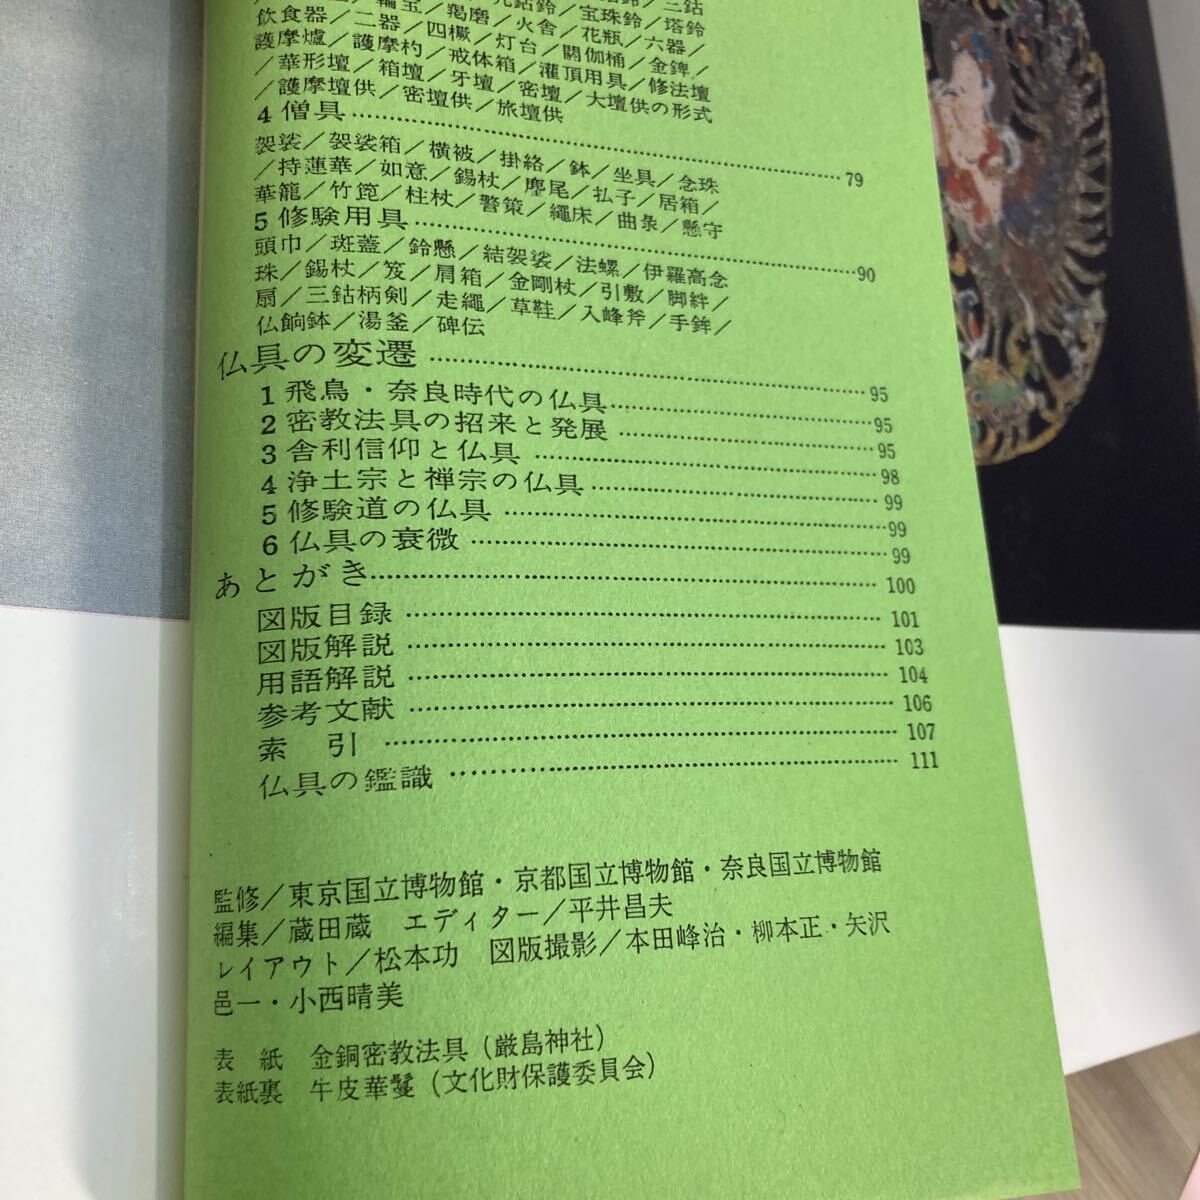 輪宝／羯磨／火舎／花瓶／六器／
飲食器／二器／四橛／灯台／閼伽桶／金錍／
護摩爐／護摩杓／戒体箱／灌頂用具／修法壇
／華形壇／箱壇／牙壇／密壇／大壇供の形式
／護摩壇供／密壇供／旅壇供
4 僧具……79
袈裟／袈裟箱／横被／掛絡／鉢／坐具／念珠
／持蓮華／如意／錫杖／麈尾／払子／居箱／
華籠／竹箆／柱杖／警策／繩床／曲彔／懸守
5 修験用具……90
頭巾／斑蓋／鈴懸／結袈裟／法螺／伊羅高念
珠／錫杖／笈／肩箱／金剛杖／引敷／脚絆／
扇／三鈷柄剣／走繩／草鞋／入峰斧／手鉾／
仏餉鉢／湯釜／碑伝
仏具の変遷……95
1 飛鳥・奈良時代の仏具……95
2 密教法具の招来と発展……95
3 舎利信仰と仏具……98
4 浄土宗と禅宗の仏具……99
5 修験道の仏具……99
6 仏具の衰微……99
あとがき……100
図版目録……101
図版解説……103
用語解説……104
参考文献……106
索　引……107
仏具の鑑識……111
監修／東京国立博物館・京都国立博物館・奈良国立博物館
編集／蔵田蔵　エディター／平井昌夫
レイアウト／松本功　図版撮影／本田峰治・柳本正・矢沢
邑一・小西晴美
表　紙　金銅密教法具（厳島神社）
表紙裏　牛皮華鬘（文化財保護委員会）